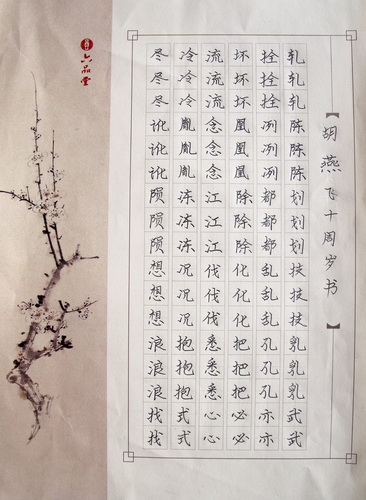 【胡燕飞十周岁书】
轧轧轧陈陈陈划划划技技技乳乳乳武武
拴拴拴冽冽冽都都都乱乱乱孔孔孔亦亦
坏坏坏凰凰凰除除除化化化把把把必必
流流流念念念江江江伐伐伐悉悉悉心心
冷冷冷胤胤胤冻冻冻况况况抱抱抱式式
尽尽尽讹讹讹陨陨陨想想想浪浪浪找找
六品堂